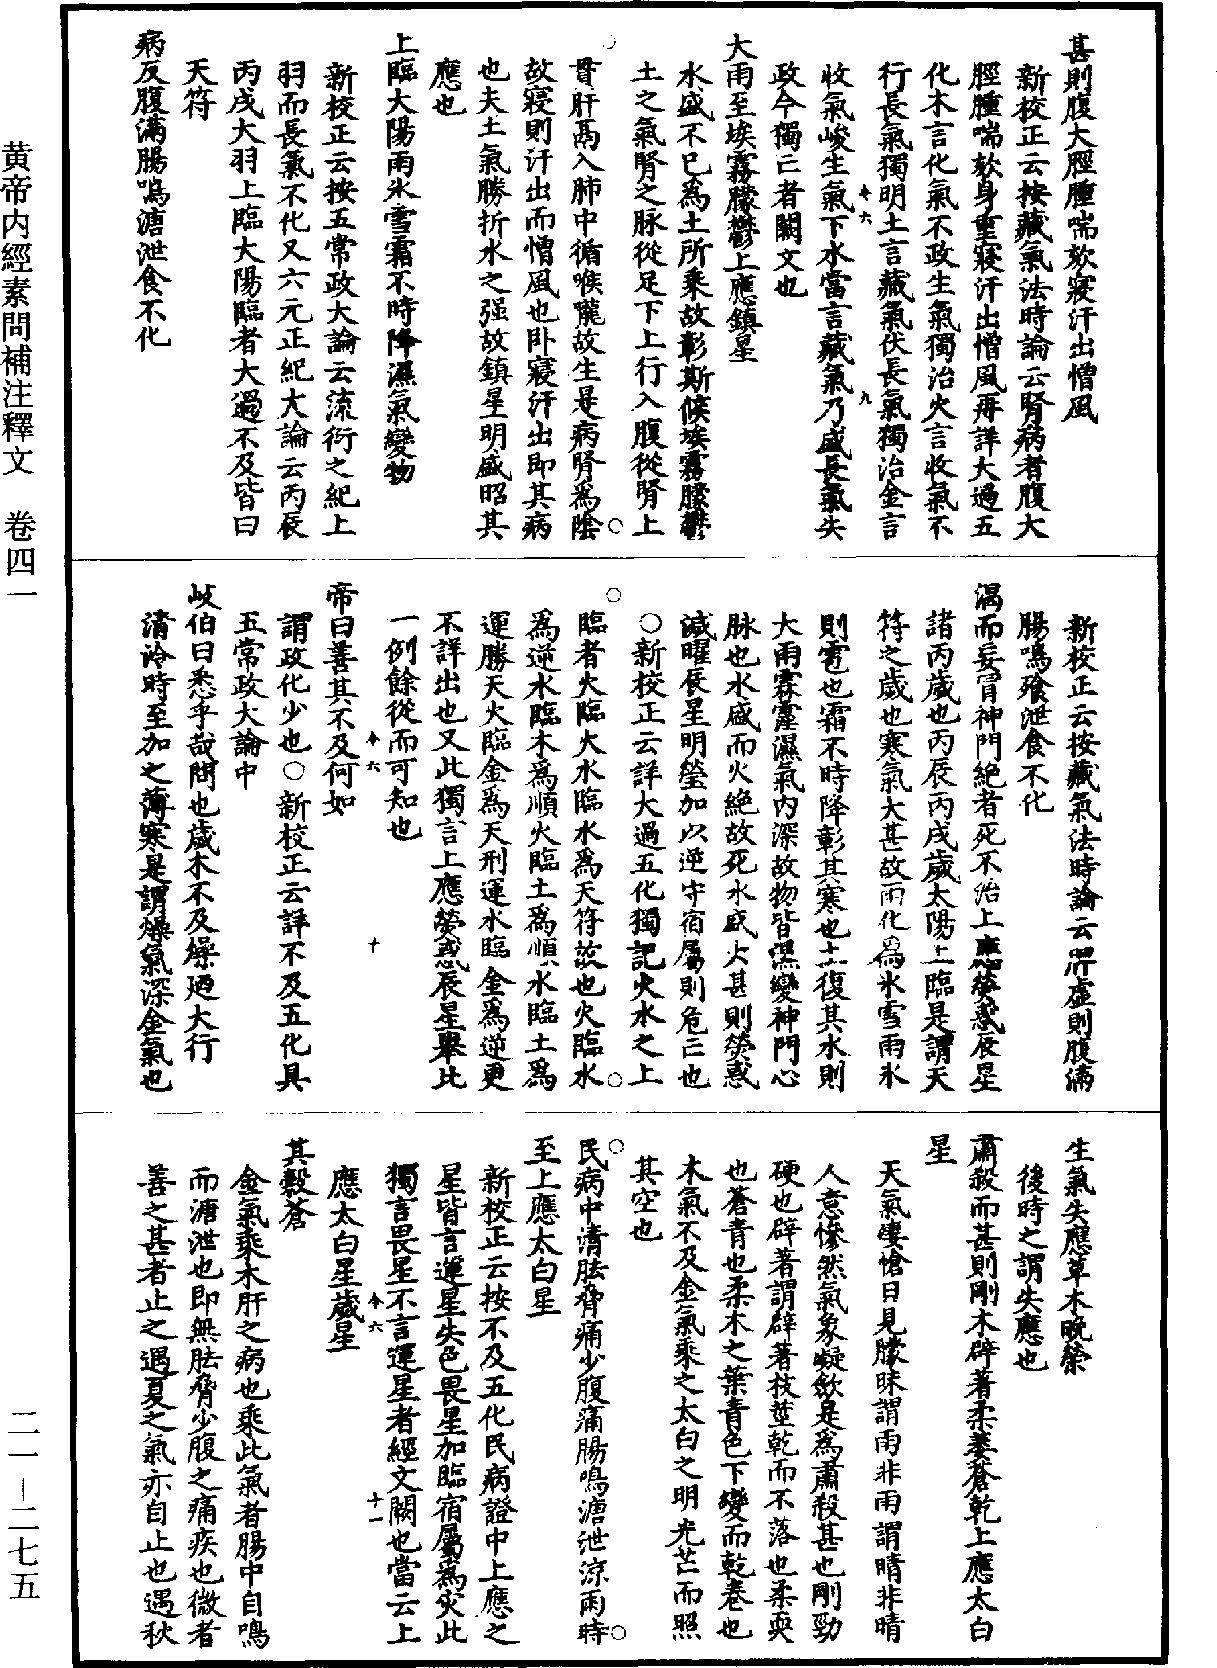 黄帝内經素問補注釋文　卷四一
二一—二七五
甚則腹大脛腫喘欬寢汗出憎風
新校正云按藏氣法時論云腎病者腹大
脛腫喘欬身重寢汗出憎風再詳大過五
化木言化氣不政生氣獨治火言收氣不
行長氣獨明土言藏氣伏長氣獨治金言
收氣峻生氣下水當言藏氣乃盛長氣失
政今獨亡者闕文也
大雨至埃霧朦鬱上應鎮星
水盛不已為土所乘故彰斯候埃霧朦鬱
土之氣腎之脉從足下上行入腹從腎上
貫肝鬲入肺中循喉嚨故生是病腎為陰
故寢則汗出而憎風也卧寢汗出即其病
也夫土氣勝折水之强故鎮星明盛昭其
應也
上臨大陽雨氷雪霜不時降濕氣變物
新校正云按五常政大論云流衍之紀上
羽而長氣不化又六元正紀大論云丙辰
丙戌大羽上臨大陽臨者大過不及皆曰
天符
病反腹滿腸鳴溏泄食不化
新校正云按藏氣法時論云脾虛則腹滿
腸鳴飧泄食不化
渴而妄冒神門絶者死不治上應熒惑辰星
諸丙歲也丙辰丙戌歲太陽上臨是謂天
符之歲也寒氣大甚故雨化為氷雪雨氷
則雹也霜不時降彰其寒也土復其水則
大雨霖霪濕氣内深故物皆濕變神門心
脉也水盛而火絶故死水盛大甚則熒惑
減曜辰星明瑩加以逆守宿屬則危亡也
○新校正云詳大過五化獨記火水之上
臨者火臨火水臨水為天符故也火臨水
為逆水臨木為順火臨土為順水臨土為
運勝天火臨金為天刑運水臨金為逆更
不詳出也又此獨言上應熒惑辰星舉此
一例餘從而可知也
帝曰善其不及何如
謂政化少也○新校正云詳不及五化具
五常政大論中
岐伯曰悉乎哉問也歲木不及燥廼大行
清泠時至加之薄寒是謂燥氣深金氣也
生氣失應草木晚榮
後時之謂失應也
肅殺而甚則剛木辟著柔萎蒼乾上應太白
星
天氣悽愴日見朦昧謂雨非雨謂晴非晴
人意慘然氣象凝斂是為肅殺甚也剛勁
硬也辟著謂辟著枝莖乾而不落也柔耎
也蒼青也柔木之葉青色下變而乾卷也
木氣不及金氣乘之太白之明光芒而照
其空也
民病中清胠脅痛少腹痛腸鳴溏泄涼雨時
至上應太白星
新校正云按不及五化民病證中上應之
星皆言運星失色畏星加臨宿屬為灾此
獨言畏星不言運星者經文闕也當云上
應太白星歲星
其穀蒼
金氣乘木肝之病也乘此氣者腸中自鳴
而溏泄也即無胠脅少腹之痛疾也微者
善之甚者止之遇夏之氣亦自止也遇秋